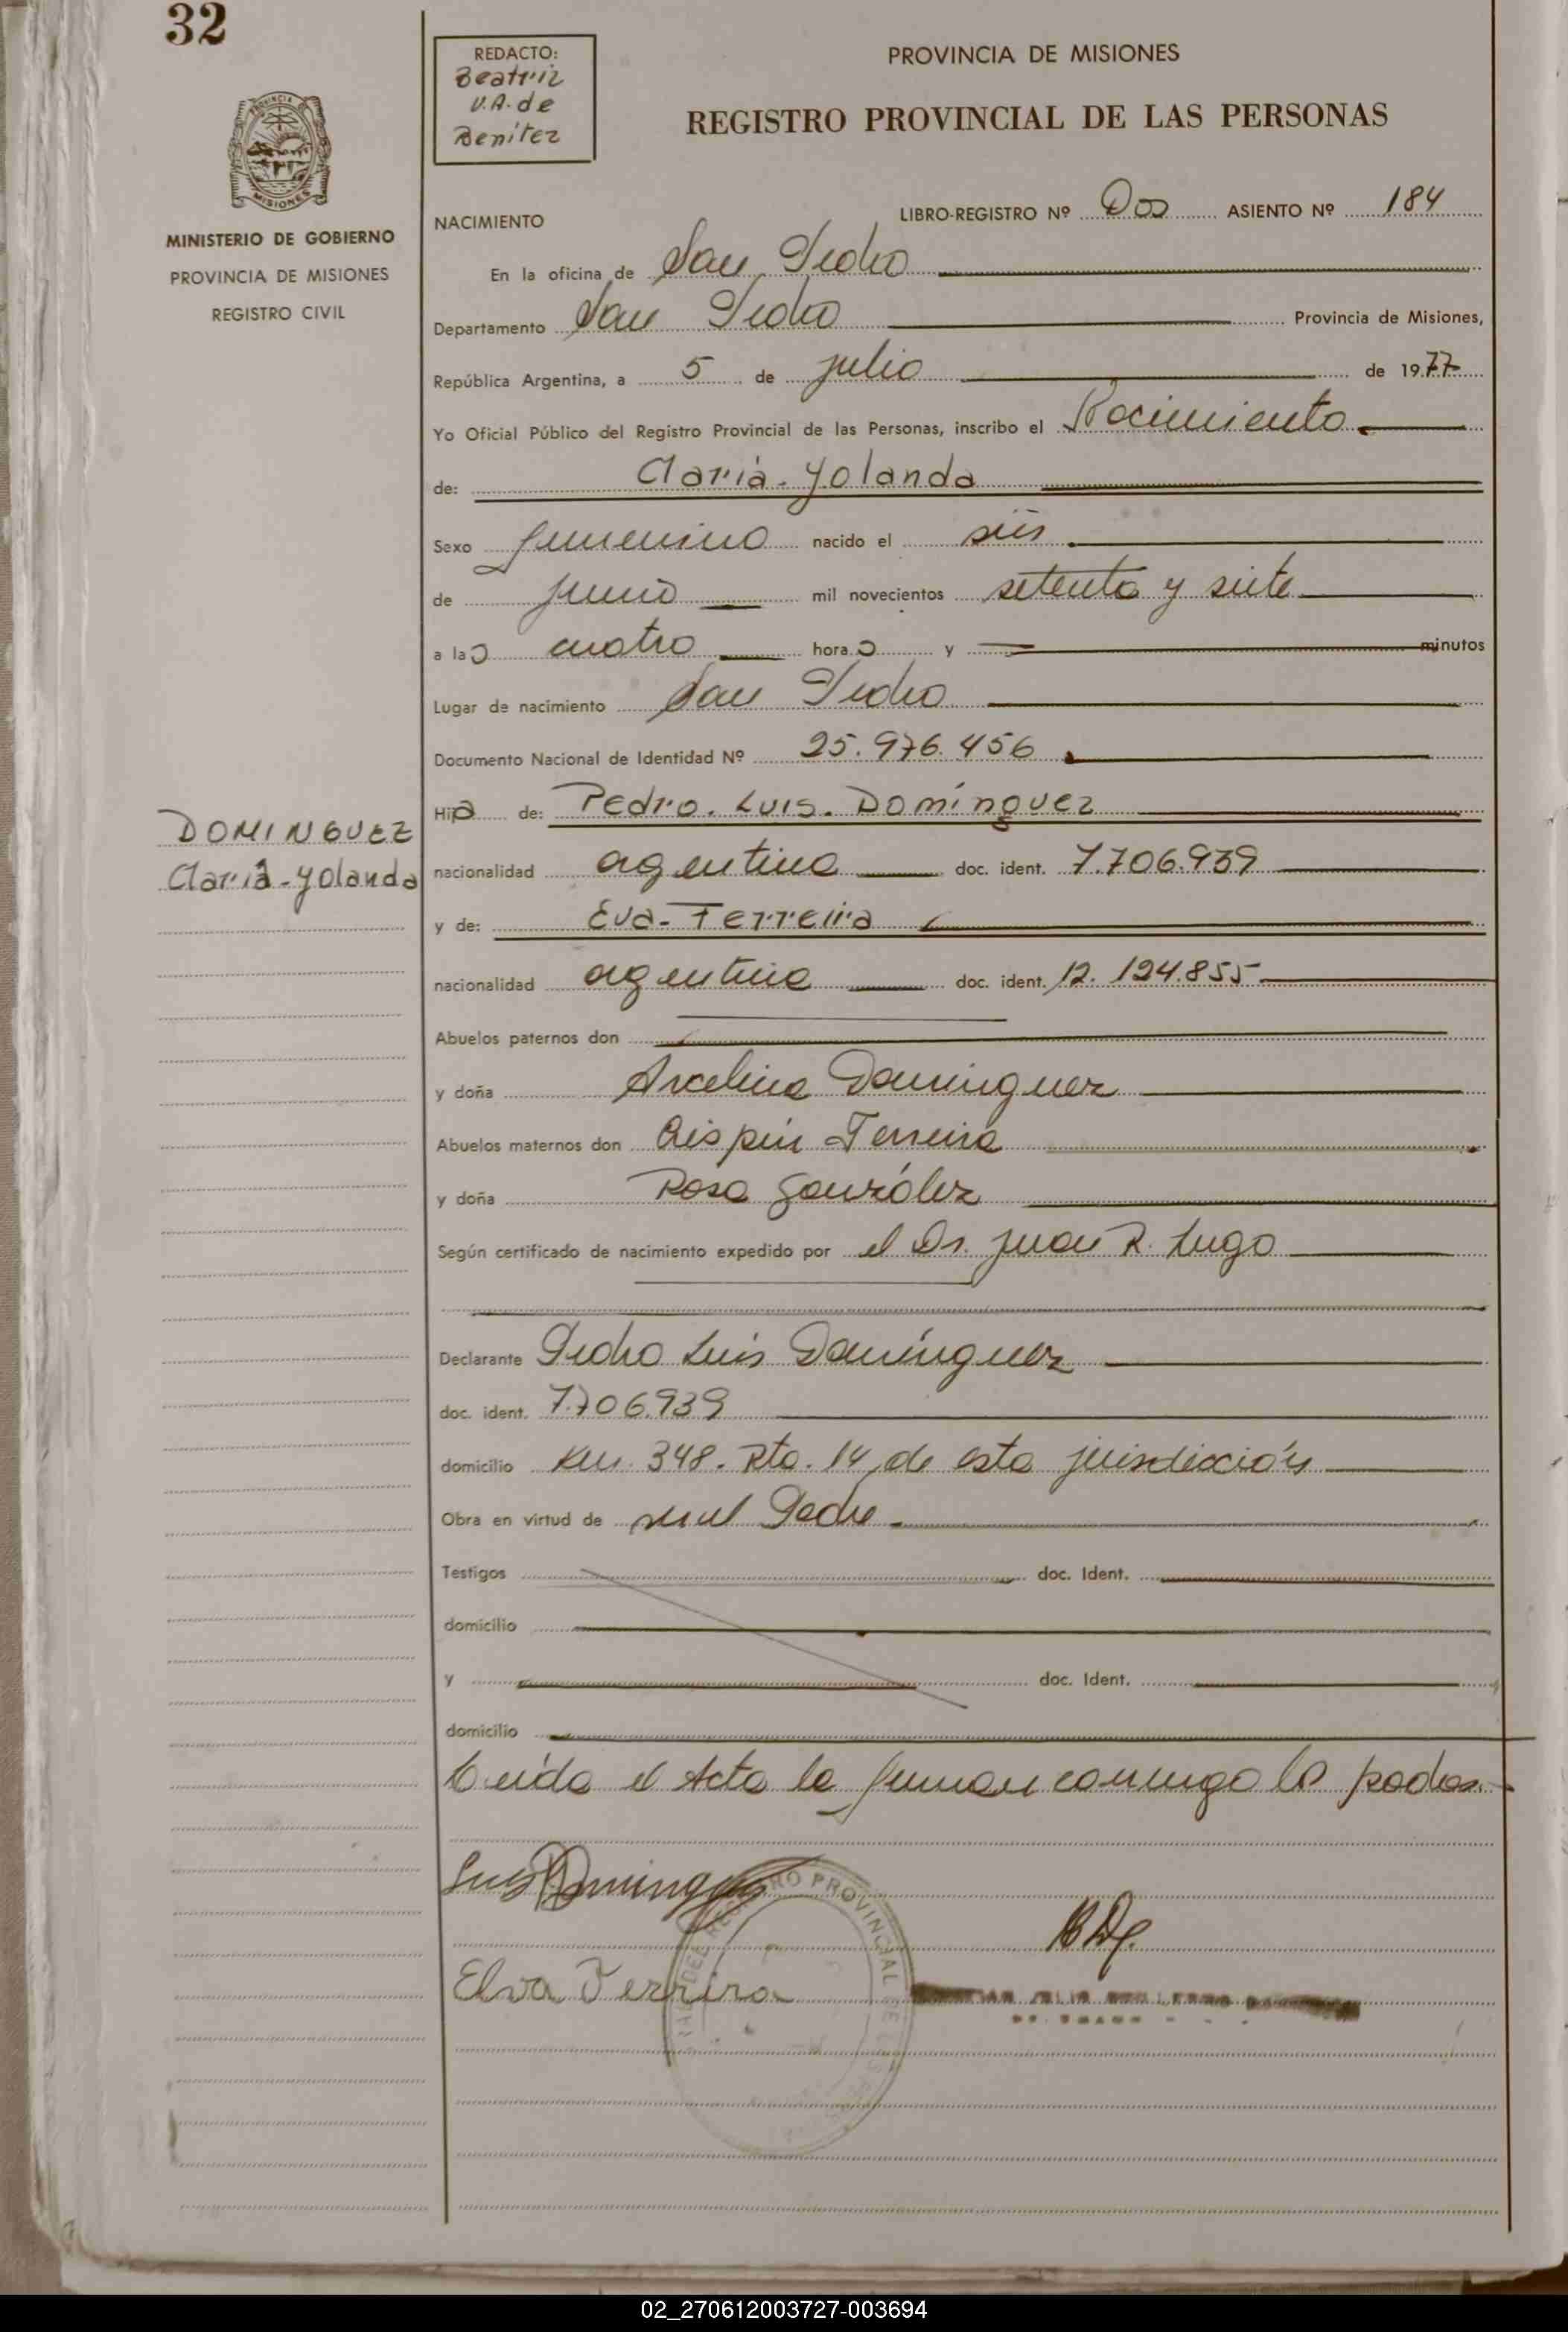 32
REDACTO:
Beatriz
V.A. de
Benítez
PROVINCIA DE MISIONES
REGISTRO PROVINCIAL DE LAS PERSONAS
MISIONES
MINISTERIO DE GOBIERNO
PROVINCIA DE MISIONES
REGISTRO CIVIL
LIBRO-REGISTRO Nº Dos ASIENTO Nº 184
NACIMIENTO
En la oficina de San Pedro
Departamento San Pedro Provincia de Misiones,
República Argentina, a 5 de julio de 1977
Yo Oficial Público del Registro Provincial de las Personas, inscribo el Nacimiento
de: Claria-Yolanda
Sexo femenino nacido el seis
de junio mil novecientos setenta y siete
a las cuatro horas y minutos
Lugar de nacimiento San Pedro
Documento Nacional de Identidad Nº 25.976.456
DOMINGUEZ
Claria-Yolanda
Hija de: Pedro. Luis. Domínguez
nacionalidad argentina doc. ident. 7.706.939
y de: Eva-Ferreira
nacionalidad argentina doc. ident. 12.124.855
Abuelos paternos don
y doña Arcelina Domínguez
Abuelos maternos don Crispín Ferreira
y doña Rosa González
Según certificado de nacimiento expedido por el Dr. Juan R. Lugo
Declarante Pedro Luis Domínguez
doc. ident. 7.706.939
domicilio Km. 348. Rta. 14, de esta jurisdicción
Obra en virtud de ser el Padre
Testigos doc. Ident.
domicilio
y doc. Ident.
domicilio
Leída el Acta la firman conmigo los padres.
Luis Dominguez
REGISTRO PROVINCIAL DE LAS
Elva Ferrira
02_270612003727-003694